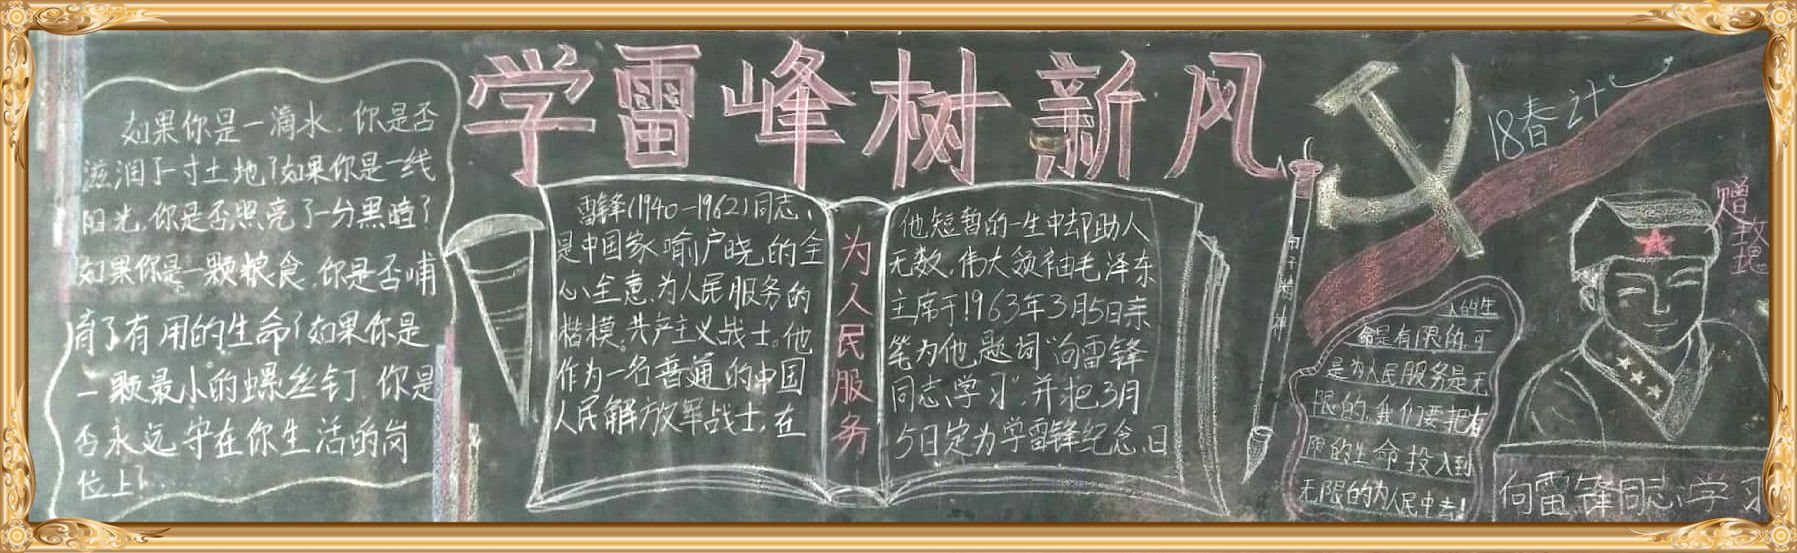 学雷峰树新风
如果你是一滴水.你是否
滋润了一寸土地?如果你是一线
阳光.你是否照亮了一分黑暗?
如果你是一颗粮食.你是否哺
育了有用的生命?如果你是
一颗最小的螺丝钉.你是
否永远守在你生活的岗
位上?...
雷锋(1940-1962)同志、
是中国家喻户晓的全
心全意.为人民服务的
楷模.共产主义战士。他
作为一名普通的中国
人民解放军战士,在
为人民服务
他短暂的一生中却助人
无数.伟大领袖毛泽东
主席于1963年3月5日亲
笔为他题词"向雷锋
同志学习".并把3月
5日定为学雷锋纪念日
钉子精神
18春计
人的生
命是有限的.可
是为人民服务是无
限的.我们要把有
限的生命投入到
无限的为人民中去!
向雷锋同志学习